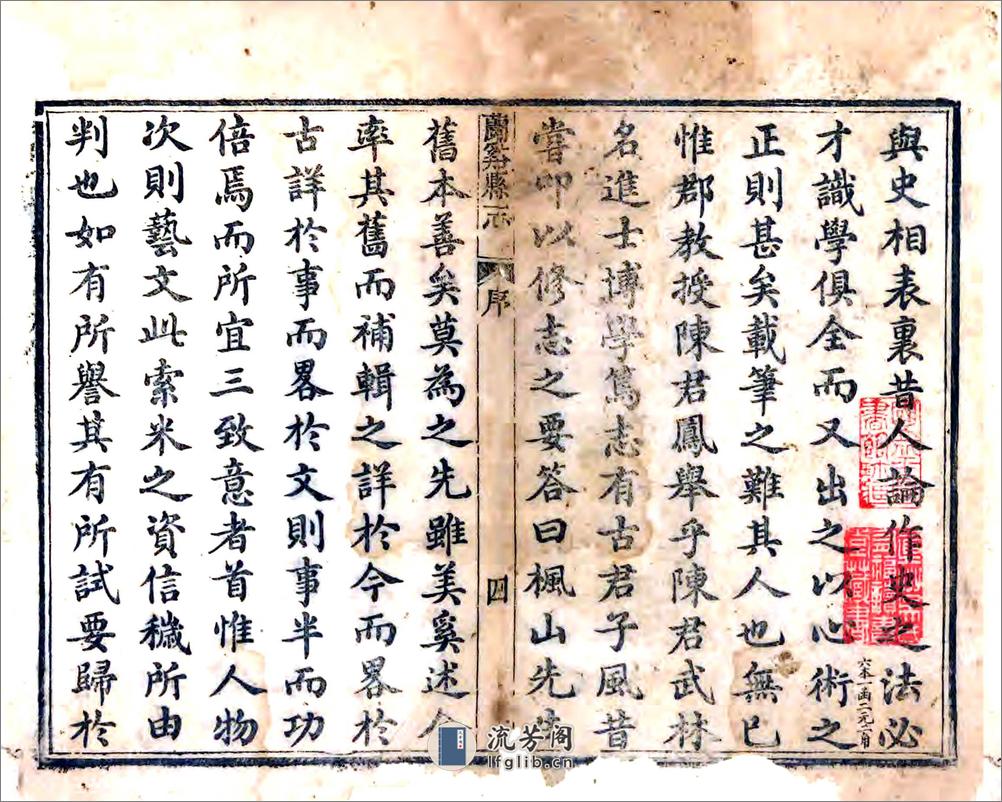 與史相表裏昔人論作史之法必
才識學俱全而又出之以心術之
正則甚矣載筆之難其人也無已
惟郡教授陳君鳳舉乎陳君武林
名進士博學篤志有古君子風昔
嘗叩以修志之要答曰楓山先生
蘭谿縣志
序
四
舊本善矣莫為之先雖美奚述今
率其舊而補輯之詳於今而畧於
古詳於事而畧於文則事半而功
倍焉而所宜三致意者首惟人物
次則藝文此索米之資信穢所由
判也如有所譽其有所試要歸於
六本一函二元
流芳阁
lfglib.cn